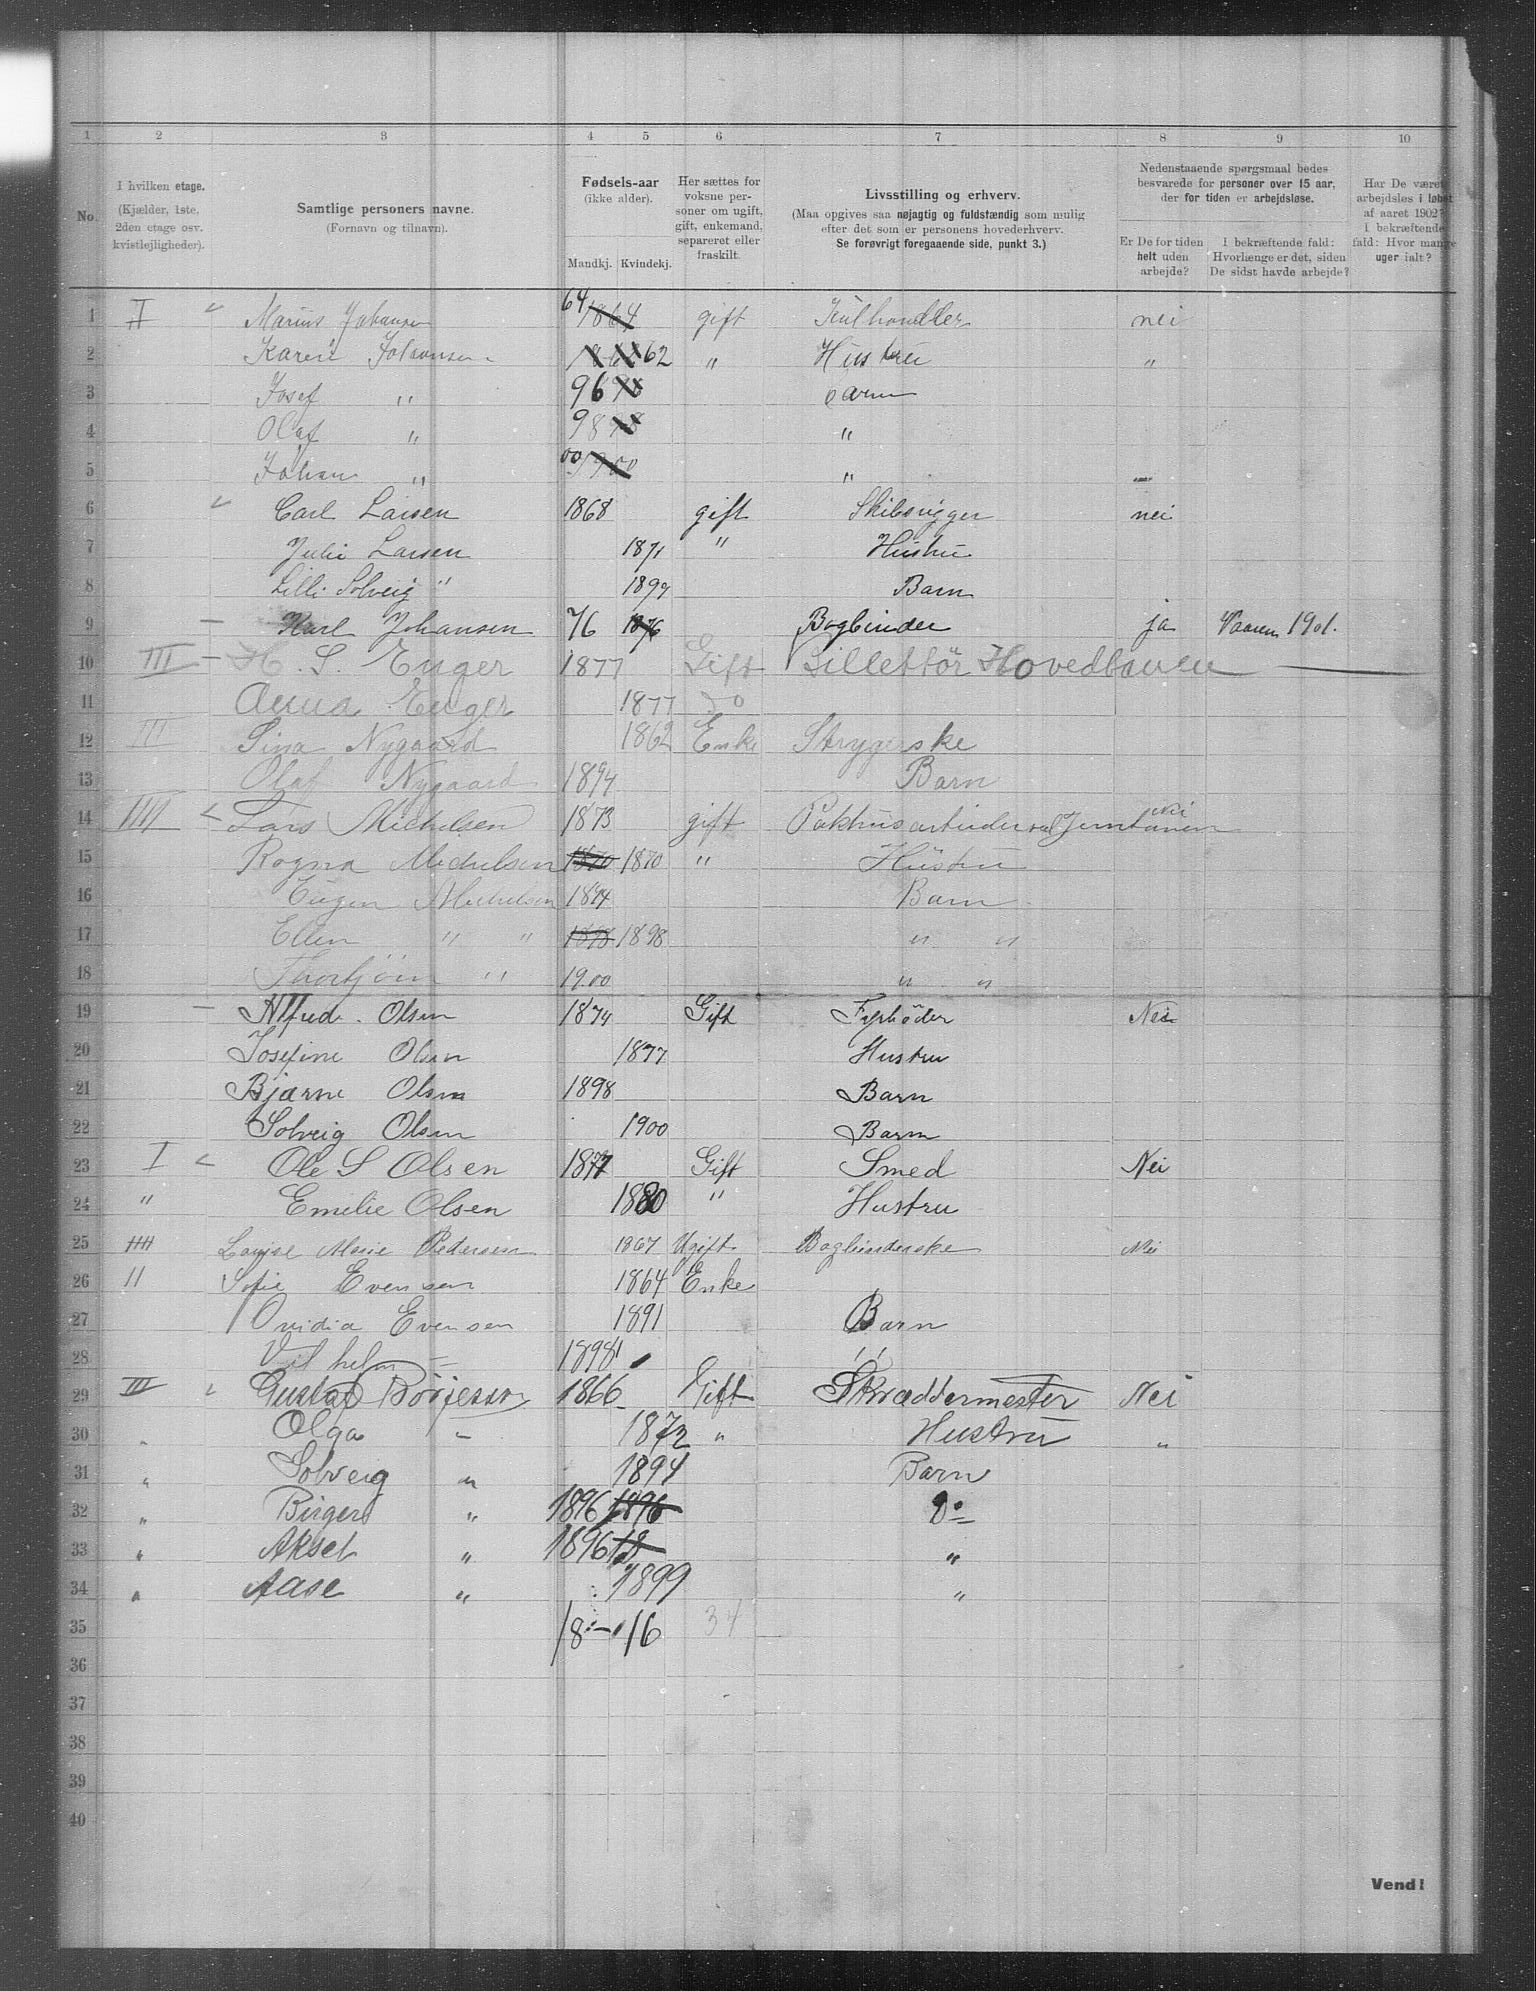 1 2 3 4 5 6 7 8 9 10
No.
I hvilken etage.
(Kjælder, 1ste,
2den etage osv.
kvistlejligheder).
Samtlige personers navne.
(Fornavn og tilnavn).
Fødsels-aar
(ikke alder).
Mandkj. Kvindekj.
Her sættes for
voksne per-
soner om ugift,
gift, enkemand,
separeret eller
fraskilt.
Livsstilling og erhverv.
(Maa opgives saa nøjagtig og fuldstændig som mulig
efter det som er personens hovederhverv.
Se forøvrigt foregaaende side, punkt 3.)
Nedenstaaende spørgsmaal bedes
besvarede for personer over 15 aar,
der for tiden er arbejdsløse.
Er De for tiden
helt uden
arbejde?
I bekræftende fald:
Hvorlænge er det, siden
De sidst havde arbejde?
Har De været
arbejdsløs i løbet
af aaret 1902?
I bekræftende
fald: Hvor mange
uger ialt?
1 II Marius Johansen 64 1864 gift Kulhandler nei
2 Karen Johansen 62 " Hustru "
3 Josef " 96 barn
4 Olaf " 98 "
5 Johan " 00 1900 "
6 Carl Larsen 1868 gift Skibsrigger nei
7 Julie Larsen 1871 " Hustru
8 Lilli Solveig " 1899 Barn
9 Karl Johansen 76 1876 Bogbinder ja Vaaren 1901.
10 III H. S. Enger 1877 Gift Billettör Hovedbanen
11 Anna Enger 1877 do
12 III Sina Nygaard 1862 Enke Strygerske
13 Olaf Nygaard 1894 Barn
14 IIII Lars Michelsen 1873 gift Pakhusarbeider ved Jernbanen Nei
15 Ragna Michelsen 1870 1870 " Hustru
16 Eugen Michelsen 1894 Barn
17 Ellen " " 1898 1898 " "
18 Thorbjörn " 1900 " "
19 Alfred Olsen 1874 Gift Fyrböder Nei
20 Josefine Olsen 1877 Hustru
21 Bjarne Olsen 1898 Barn
22 Solveig Olsen 1900 Barn
23 I Ole S Olsen 1877 Gift Smed Nei
24 " Emilie Olsen 1880 " Hustru
25 IIII Louise Marie Pedersen 1867 Ugift Bogbinderske Nei
26 II Sofie Evensen 1864 Enke
27 Ovidia Evensen 1891 Barn
28 Vilhelm — 1898 "
29 III Gustaf Börjesson 1866 Gift Skræddermester Nei
30 " Olga — 1872 " Hustru "
31 " Solveig " 1894 Barn
32 " Birger " 1896 1896 Do
33 " Aksel " 1896 18 "
34 " Aase " 1899 "
35 18 — 16 34
36
37
38
39
40
Vend!